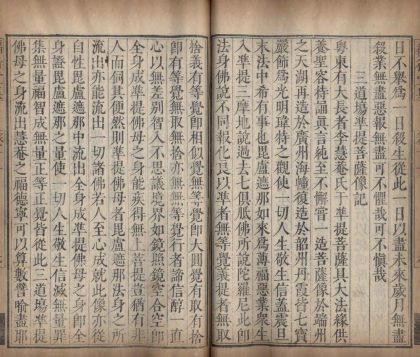 日不舉爲一日殺生此一日盡未來歲月無盡
殺業無盡惡報無盡可不懼哉可不慎哉
三道場準提菩薩像記
粵東有大長者李慧菴氏于準提菩薩具大法緣供
養聖容持誦眞言純至不懈嘗一造菩薩像於端州
之天湖再造於廣州海幢復造於韶州丹霞皆七寶
嚴飾爲光明瑋特之觀使一切人生敬生信蓋震旦
末法中希有事也毘盧遮那如來爲薄福惡業衆生
入準提三摩地說過去七俱胝佛所說陀羅尼此卽
法身佛說不同報化良以準者無等覺義提者無取
捨義有等覺卽相似覺無等覺卽大圓覺有取有捨
卽有等覺無取無捨卽無等覺行者諦信一直
心以無差別智入不思議境界如鏡照鏡空合空卽
全身成準提佛母之身能疾得無上菩提豈猶有
人而伺其便然則準提佛母者毘盧遮那法身之所
流出亦能流出一切諸佛若人至心成就此像亦從
自性毘盧遮那中流出全身成準提佛母亦卽全
身證毘盧遮那之量使一切人生敬生信滅無量罪
集無量福智成無量正等正覺皆從此三道場準提
佛母之身流出慧菴之福德寧可以算數譬喻盡耶